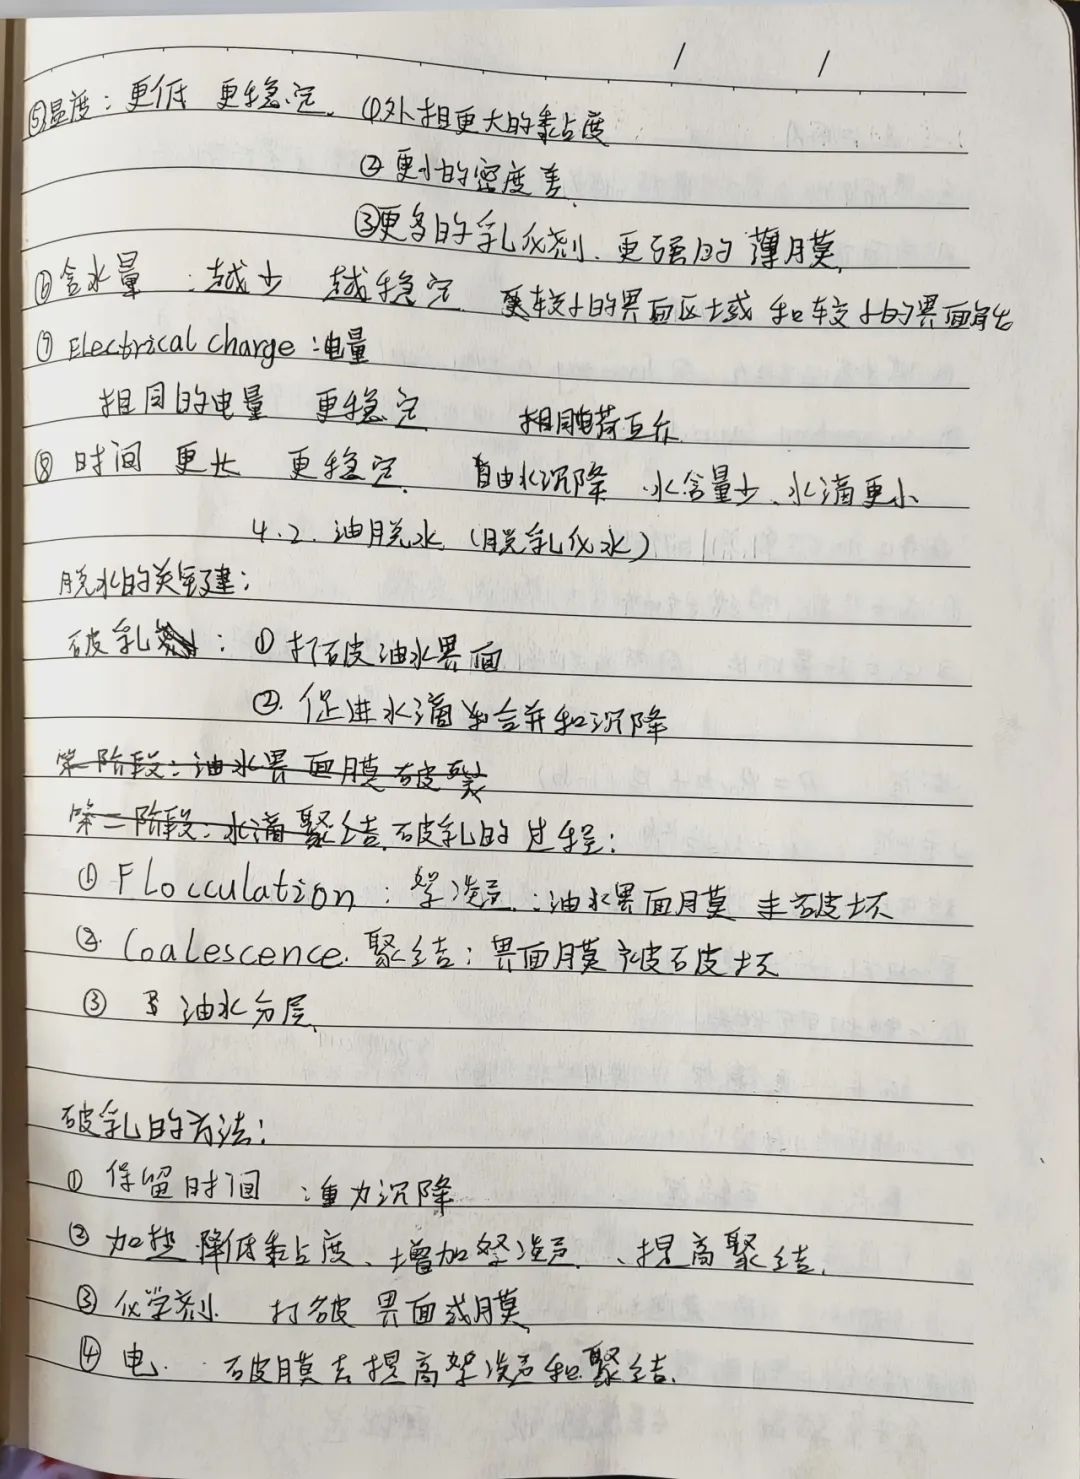 ⑤温度：更低 更稳定. ①外相更大的黏度
② 更小的密度差.
③更多的乳化剂. 更强的薄膜.
⑥含水量 ：越少 越稳定 更较小的界面区域和较小的界面能
⑦ Electrical charge：电量
相同的电量 更稳定 相同电荷互斥
⑧ 时间 更长 更稳定. 自由水沉降. 水含量少、水滴更小
4.2. 油脱水（脱乳化水）
脱水的关键：
破乳剂：① 打破油水界面
②. 促进水滴的合并和沉降
第一阶段：油水界面膜破裂
第二阶段：水滴聚结. 破乳的过程：
① Flocculation：絮凝：油水界面膜未破坏
②. Coalescence. 聚结：界面膜被破坏
③ 油水分层.
破乳的方法：
① 保留时间 ：重力沉降
② 加热 降低黏度、增加絮凝、提高聚结.
③ 化学剂. 打破界面或膜
④ 电. 破膜去提高絮凝和聚结.